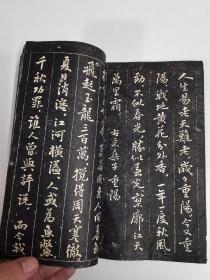 人生易老天難老歲々重陽今又重
陽戰地黃花分外香一年一度秋風
勁不似春光勝似春光寥廓江天
萬里霜 右采桑子重陽
飛起玉龍三百萬攪得周天寒徹
夏日消溶江河橫溢人或為魚鱉
千秋功罪誰人曾與評說 而今我